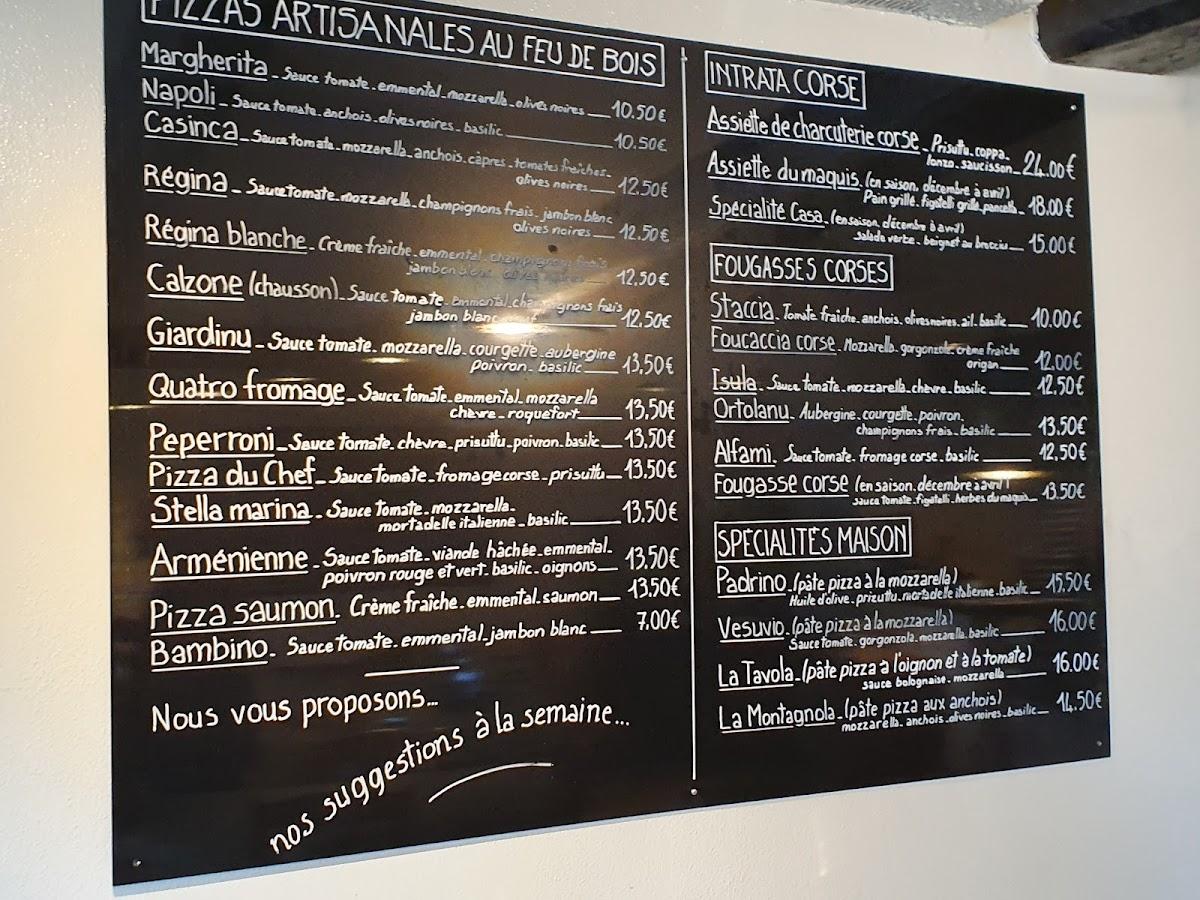 PIZZAS ARTISANALES AU FEU DE BOIS
Margherita - Sauce tomate - emmental - mozzarella - olives noires 10.50€
Napoli - Sauce tomate - anchois - olives noires - basilic 10.50€
Casinca - Sauce tomate - mozzarella - anchois - câpres - tomates fraîches -
olives noires 12.50€
Régina - Sauce tomate - mozzarella - champignons frais - jambon blanc
olives noires 12.50€
Régina blanche - Crème fraîche - emmental - champignons frais
jambon blanc - olives noires 12,50€
Calzone (chausson) - Sauce tomate - emmental - champignons frais
jambon blanc - oeuf 12,50€
Giardinu - Sauce tomate - mozzarella - courgette - aubergine
poivron - basilic 13,50€
Quatro fromage - Sauce tomate - emmental - mozzarella
chèvre - roquefort 13,50€
Peperroni - Sauce tomate - chèvre - prisuttu - poivron - basilic 13,50€
Pizza du Chef - Sauce tomate - fromage corse - prisuttu 13,50€
Stella marina - Sauce tomate - mozzarella -
mortadelle italienne - basilic 13,50€
Arménienne - Sauce tomate - viande hâchée - emmental -
poivron rouge et vert - basilic - oignons 13.50€
Pizza saumon - Crème fraîche - emmental - saumon 13.50€
Bambino - Sauce tomate - emmental - jambon blanc 7,00€
Nous vous proposons...
nos suggestions à la semaine...
INTRATA CORSE
Assiette de charcuterie corse - Prisuttu - coppa -
lonzo - saucisson - 24.00€
Assiette du maquis (en saison, décembre à avril)
Pain grillé - figatelli grillé - pancetta - 18.00€
Spécialité Casa - (en saison, décembre à avril)
salade verte - beignet au brocciu 15.00€
FOUGASSES CORSES
Staccia - Tomate fraîche - anchois - olives noires - ail - basilic 10.00€
Foucaccia corse - Mozzarella - gorgonzola - crème fraîche
origan 12.00€
Isula - Sauce tomate - mozzarella - chèvre - basilic 12.50€
Ortolanu - Aubergine - courgette - poivron -
champignons frais - basilic 13.50€
Alfami - Sauce tomate - fromage corse - basilic 12.50€
Fougasse corse (en saison, décembre à avril)
sauce tomate - figatelli - herbes du maquis 13.50€
SPECIALITÉS MAISON
Padrino - (pâte pizza à la mozzarella)
Huile d'olive - prizuttu - mortadelle italienne - basilic 15,50€
Vesuvio - (pâte pizza à la mozzarella)
Sauce tomate - gorgonzola - mozzarella - basilic 16.00€
La Tavola - (pâte pizza à l'oignon et à la tomate)
sauce bolognaise - mozzarella 16.00€
La Montagnola - (pâte pizza aux anchois)
mozzarella - anchois - olives noires - basilic 14.50€